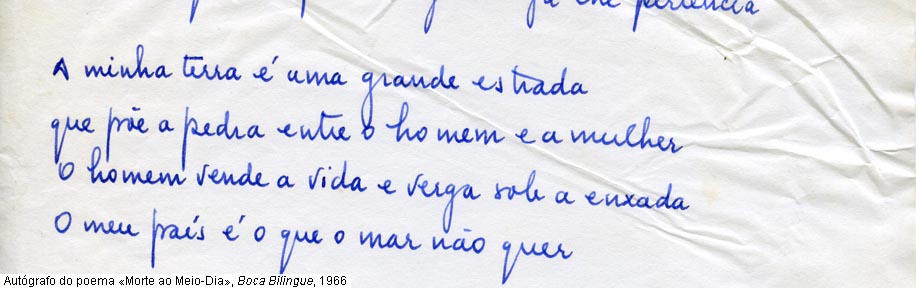 já lhe pertencia
A minha terra é uma grande estrada
que põe a pedra entre o homem e a mulher
O homem vende a vida e verga sob a enxada
O meu país é o que o mar não quer
Autógrafo do poema «Morte ao Meio-Dia», Boca Bilingue, 1966